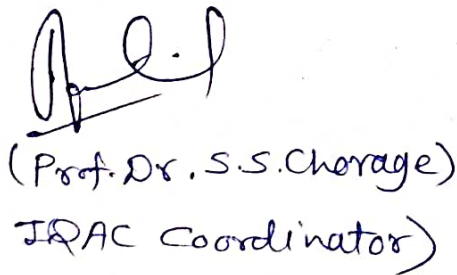 (Prof. Dr. S.S. Chorage)
IQAC Coordinator)